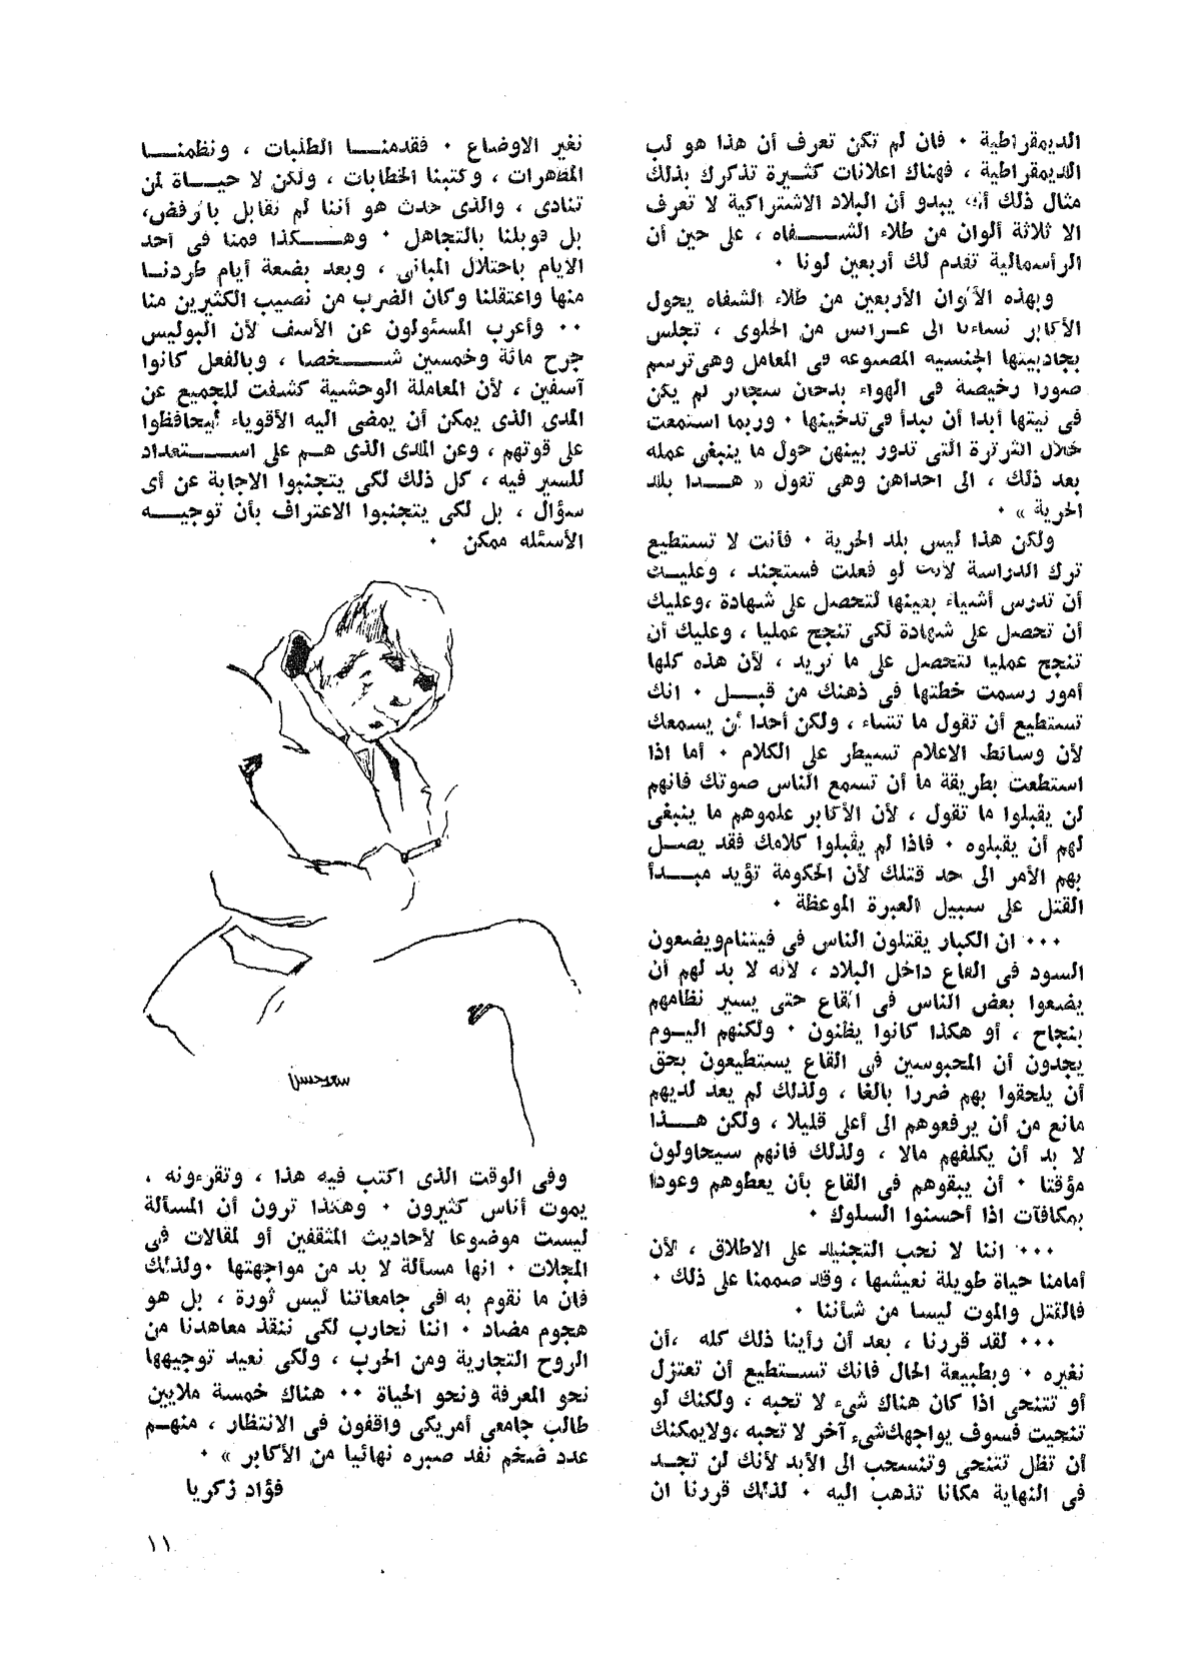 الديمقراطية ٠ فان لم تكن تعرف أن هذا هو لب
الديمقراطية ، فهناك اعلانات كثـيرة تذكرك بذلك
مثال ذلك أنه يبدو أن البلاد الاشتراكية لا تعرف
الا ثلاثة ألوان من طلاء الشـــفاه ، على حين أن
الرأسمالية تقدم لك أربعين لونا ٠
وبهذه الألوان الأربعين من طلاء الشفاه يحول
الأكابر نساءنا الى عرائس من الحلوى ، تجلس
بجاذبيتها الجنسيه المصنوعه فى المعامل وهى ترسم
صورا رخيصة فى الهواء بدخان سجائر لم يكن
فى نيتها أبدا أن تبدأ فى تدخينها ٠ وربما استمعت
خلال الثرثرة التى تدور بينهن حول ما ينبغى عمله
بعد ذلك ، الى احداهن وهى تقول « هــذا بلد
الحرية » ٠
ولكن هذا ليس بلد الحرية ٠ فأنت لا تستطيع
ترك الدراسة لأنك لو فعلت فستجند ، وعليـك
أن تدرس أشياء بعينها لتحصل على شهادة ،وعليك
أن تحصل على شهادة لكى تنجح عمليا ، وعليك أن
تنجح عمليا لتحصل على ما تريد ، لأن هذه كلها
أمور رسمت خطتها فى ذهنك من قبــل ٠ انك
تستطيع أن تقول ما تشاء ، ولكن أحدا لن يسمعك
لأن وسائط الاعلام تسيطر على الكلام ٠ أما اذا
استطعت بطريقة ما أن تسمع الناس صوتك فانهم
لن يقبلوا ما تقول ، لأن الأكابر علموهم ما ينبغى
لهم أن يقبلوه ٠ فاذا لم يقبلوا كلامك فقد يصـل
بهم الأمر الى حد قتلك لأن الحكومة تؤيد مبــدأ
القتل على سبيل العبرة الموعظة ٠
٠٠٠ ان الكبار يقتلون الناس فى فيتنام ويضعون
السود فى القاع داخل البلاد ، لأنه لا بد لهم أن
يضعوا بعض الناس فى القاع حتى يسير نظامهم
بنجاح ، أو هكذا كانوا يظنون ٠ ولكنهم اليـوم
يجدون أن المحبوسين فى القاع يستطيعون بحق
أن يلحقوا بهم ضررا بالغا ، ولذلك لم يعد لديهم
مانع من أن يرفعوهم الى أعلى قليلا ، ولكن هــذا
لا بد أن يكلفهم مالا ، ولذلك فانهم سيحاولون
مؤقتا ٠ أن يبقوهم فى القاع بأن يعطوهم وعودا
بمكافآت اذا أحسنوا السلوك ٠
٠٠٠ اننا لا نحب التجنيد على الاطلاق ، لأن
أمامنا حياة طويلة نعيشها ، وقد صممنا على ذلك ٠
فالقتل والموت ليسا من شأننا ٠
٠٠٠ لقد قررنا ، بعد أن رأينا ذلك كله ،أن
نغيره ٠ وبطبيعة الحال فانك تسـتطيع أن تعتزل
أو تتنحى اذا كان هناك شىء لا تحبه ، ولكنك لو
تنحيت فسوف يواجهك شىء آخر لا تحبه ،ولايمكنك
أن تظل تتنحى وتنسحب الى الأبد لأنك لن تجـد
فى النهاية مكانا تذهب اليه ٠ لذلك قررنا ان
نغير الاوضاع ٠ فقدمنـــا الطلبات ، ونظمنـــا
المظاهرات ، وكتبنا الخطابات ، ولكن لا حيــاة لمن
تنادى ، والذى حدث هو أننا لم نقابل بالرفض،
بل قوبلنا بالتجاهل ٠ وهــكذا قمنا فى أحد
الأيام باحتلال المبانى ، وبعد بضعة أيام طردنـا
منها واعتقلنا وكان الضرب من نصيب الكثيرين منا
٠٠ وأعرب المسئولون عن الأسف لأن البوليس
جرح مائة وخمسين شــخصا ، وبالفعل كانوا
آسفين ، لأن المعاملة الوحشية كشفت للجميع عن
المدى الذى يمكن أن يمضى اليه الأقوياء ليحافظوا
على قوتهم ، وعن المدى الذى هـم على اســتعداد
للسير فيه ، كل ذلك لكى يتجنبوا الاجابة عن أى
سؤال ، بل لكى يتجنبوا الاعتراف بأن توجيــه
الأسئله ممكن ٠
سعد حسن
وفى الوقت الذى اكتب فيه هذا ، وتقرءونه ،
يموت أناس كثيرون ٠ وهكذا ترون أن المسألة
ليست موضوعا لأحاديث المثقفين أو لمقالات فى
المجلات ٠ انها مسألة لا بد من مواجهتها ٠ولذلك
فان ما نقوم به فى جامعاتنا ليس ثورة ، بل هو
هجوم مضاد ٠ اننا نحارب لكى ننقذ معاهدنا من
الروح التجارية ومن الحرب ، ولكى نعيد توجيهها
نحو المعرفة ونحو الحياة ٠٠ هناك خمسة ملايين
طالب جامعى أمريكى واقفون فى الانتظار ، منهـم
عدد ضخم نفد صبره نهائيا من الأكابر » ٠
فؤاد زكريا
١١